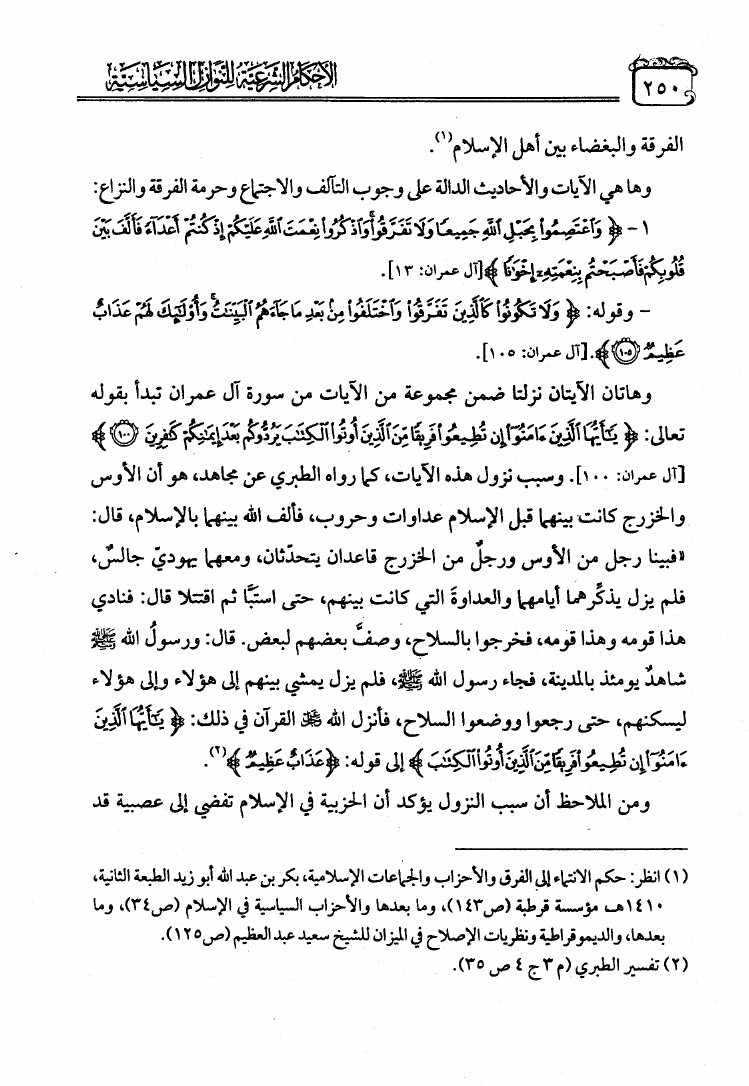 الأحكام الشرعية للنوازل السياسية
٢٥٠
الفرقة والبغضاء بين أهل الإسلام(١).
وها هي الآيات والأحاديث الدالة على وجوب التآلف والاجتماع وحرمة الفرقة والنزاع:
١- ﴿ وَاعْتَصِمُوا بِحَبْلِ اللَّهِ جَمِيعًا وَلَا تَفَرَّقُوا وَاذْكُرُوا نِعْمَتَ اللَّهِ عَلَيْكُمْ إِذْ كُنتُمْ أَعْدَاءً فَأَلَّفَ بَيْنَ
قُلُوبِكُمْ فَأَصْبَحْتُم بِنِعْمَتِهِ إِخْوَانًا ﴾ [آل عمران: ١٣].
- وقوله: ﴿ وَلَا تَكُونُوا كَالَّذِينَ تَفَرَّقُوا وَاخْتَلَفُوا مِنْ بَعْدِ مَا جَاءَهُمُ الْبَيِّنَاتُ وَأُولَئِكَ لَهُمْ عَذَابٌ
عَظِيمٌ (١٠٥) ﴾. [آل عمران: ١٠٥].
وهاتان الآيتان نزلتا ضمن مجموعة من الآيات من سورة آل عمران تبدأ بقوله
تعالى: ﴿ يَا أَيُّهَا الَّذِينَ ءَامَنُوا إِن تُطِيعُوا فَرِيقًا مِّنَ الَّذِينَ أُوتُوا الْكِتَابَ يَرُدُّوكُم بَعْدَ إِيمَانِكُمْ كَافِرِينَ (١٠٠) ﴾
[آل عمران: ١٠٠]. وسبب نزول هذه الآيات، كما رواه الطبري عن مجاهد، هو أن الأوس
والخزرج كانت بينهما قبل الإسلام عداوات وحروب، فألف الله بينهما بالإسلام، قال:
«فبينا رجل من الأوس ورجلٌ من الخزرج قاعدان يتحدّثان، ومعهما يهوديّ جالسٌ،
فلم يزل يذكِّرهما أيامهما والعداوةَ التي كانت بينهم، حتى استبَّا ثم اقتتلا قال: فنادي
هذا قومه وهذا قومه، فخرجوا بالسلاح، وصفَّ بعضهم لبعض. قال: ورسولُ الله ﷺ
شاهدٌ يومئذ بالمدينة، فجاء رسول الله ﷺ، فلم يزل يمشي بينهم إلى هؤلاء وإلى هؤلاء
ليسكنهم، حتى رجعوا ووضعوا السلاح، فأنزل الله ﷻ القرآن في ذلك: ﴿ يَا أَيُّهَا الَّذِينَ
ءَامَنُوا إِن تُطِيعُوا فَرِيقًا مِّنَ الَّذِينَ أُوتُوا الْكِتَابَ ﴾ إلى قوله: ﴿ عَذَابٌ عَظِيمٌ ﴾(٢).
ومن الملاحظ أن سبب النزول يؤكد أن الحزبية في الإسلام تفضي إلى عصبية قد
(١) انظر: حكم الانتماء إلى الفرق والأحزاب والجماعات الإسلامية، بكر بن عبد الله أبو زيد الطبعة الثانية،
١٤١٠هـ، مؤسسة قرطبة (ص١٤٣)، وما بعدها والأحزاب السياسية في الإسلام (ص٣٤)، وما
بعدها، والديموقراطية ونظريات الإصلاح في الميزان للشيخ سعيد عبد العظيم (ص١٢٥).
(٢) تفسير الطبري (م ٣ ج ٤ ص ٣٥).